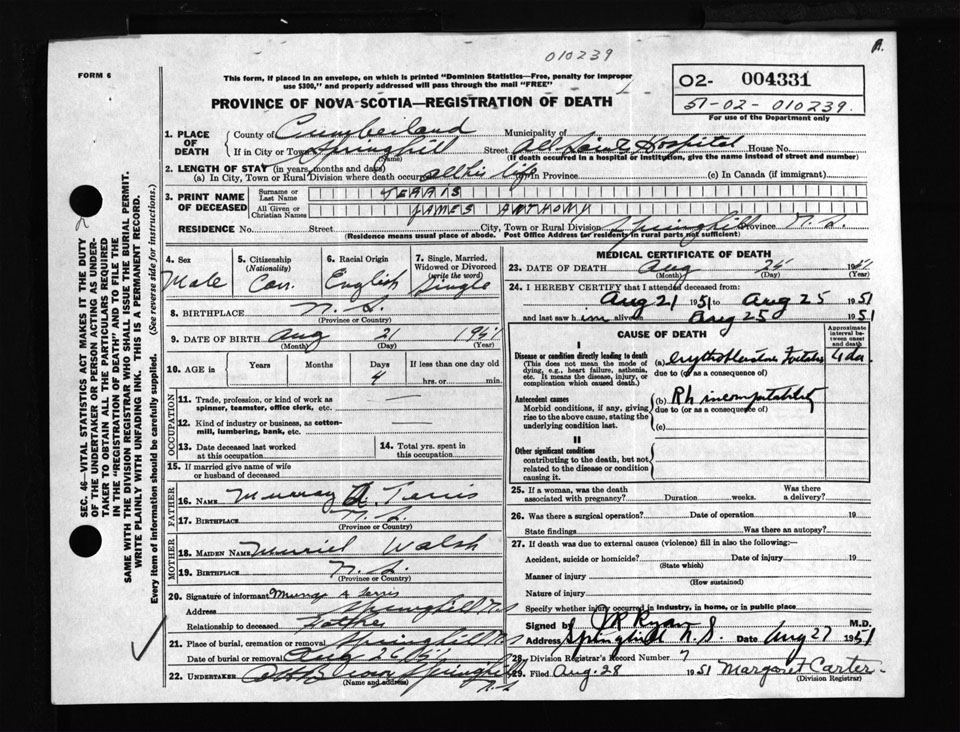 010239
FORM 6
This form, if placed in an envelope, on which is printed "Dominion Statistics—Free, penalty for improper
use $300," and properly addressed will pass through the mail "FREE"
02- 004331
51-02- 010239.
For use of the Department only
PROVINCE OF NOVA SCOTIA—REGISTRATION OF DEATH
1. PLACE OF DEATH
County of Cumberland Municipality of
If in City or Town Springhill (Name) Street All Saints Hospital House No.
(If death occurred in a hospital or institution, give the name instead of street and number)
2. LENGTH OF STAY (in years, months and days)
(a) In City, Town or Rural Division where death occurred all his life In Province (c) In Canada (if immigrant)
3. PRINT NAME OF DECEASED
Surname or Last Name TERRIS
All Given or Christian Names JAMES ANTHONY
RESIDENCE No. Street City, Town or Rural Division Springhill Province N.S.
Residence means usual place of abode. Post Office Address (for residents in rural parts not sufficient)
4. Sex Male
5. Citizenship (Nationality) Can.
6. Racial Origin English
7. Single, Married, Widowed or Divorced (write the word) Single
8. BIRTHPLACE N.S.
(Province or Country)
9. DATE OF BIRTH Aug 21 1951
(Month) (Day) (Year)
10. AGE in Years Months Days 4 If less than one day old hrs. or min.
OCCUPATION
11. Trade, profession, or kind of work as spinner, teamster, office clerk, etc. —
12. Kind of industry or business, as cotton-mill, lumbering, bank, etc. —
13. Date deceased last worked at this occupation
14. Total yrs. spent in this occupation
15. If married give name of wife or husband of deceased
FATHER
16. NAME Murray A Terris
17. BIRTHPLACE N.S.
(Province or Country)
MOTHER
18. MAIDEN NAME Muriel Walsh
19. BIRTHPLACE N.S.
(Province or Country)
20. Signature of informant Murray A Terris
Address Springhill N.S.
Relationship to deceased Father
21. Place of burial, cremation or removal Springhill N.S.
Date of burial or removal Aug 26 1951
22. UNDERTAKER Springhill N.S.
(Name and Address)
MEDICAL CERTIFICATE OF DEATH
23. DATE OF DEATH Aug 25 1951
(Month) (Day) (Year)
24. I HEREBY CERTIFY that I attended deceased from:
Aug 21 1951 to Aug 25 1951
and last saw him alive on Aug 25 1951
CAUSE OF DEATH
Approximate interval between onset and death
I
Disease or condition directly leading to death
(This does not mean the mode of dying, e.g., heart failure, asthenia, etc. It means the disease, injury, or complication which caused death.)
(a) erythroblastosis Foetalis 4 da.
due to (or as a consequence of)
Antecedent causes
Morbid conditions, if any, giving rise to the above cause, stating the underlying condition last.
(b) Rh incompatability
due to (or as a consequence of)
(c)
II
Other significant conditions
contributing to the death, but not related to the disease or condition causing it.
25. If a woman, was the death associated with pregnancy? Duration weeks. Was there a delivery?
26. Was there a surgical operation? Date of operation 19
State findings Was there an autopsy?
27. If death was due to external causes (violence) fill in also the following:—
Accident, suicide or homicide? Date of injury 19
(State which)
Manner of injury
(How sustained)
Nature of injury
Specify whether injury occurred in industry, in home, or in public place
Signed by J R Ryan M.D.
Address Springhill N.S. Date Aug 27 1951
28. Division Registrar's Record Number 7
29. Filed Aug. 28 1951 Margaret Carter
(Division Registrar)
SEC. 46—VITAL STATISTICS ACT MAKES IT THE DUTY
OF THE UNDERTAKER OR PERSON ACTING AS UNDER-
TAKER TO OBTAIN ALL THE PARTICULARS REQUIRED
IN THE "REGISTRATION OF DEATH" AND TO FILE THE
SAME WITH THE DIVISION REGISTRAR WHO SHALL ISSUE THE BURIAL PERMIT.
WRITE PLAINLY WITH UNFADING INK. THIS IS A PERMANENT RECORD.
Every item of information should be carefully supplied. (See reverse side for instructions.)